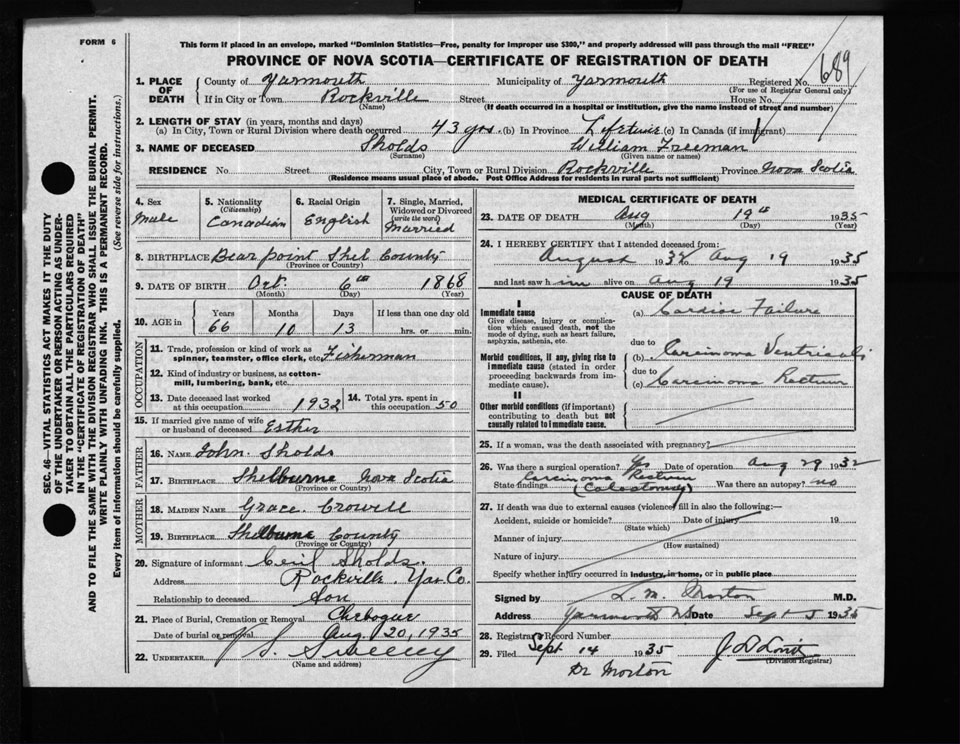 FORM 6
This form if placed in an envelope, marked "Dominion Statistics—Free, penalty for improper use $300," and properly addressed will pass through the mail "FREE"
PROVINCE OF NOVA SCOTIA—CERTIFICATE OF REGISTRATION OF DEATH
689
1. PLACE OF DEATH County of Yarmouth Municipality of Yarmouth Registered No.
(For use of Registrar General only)
If in City or Town Rockville Street House No.
(Name) (If death occurred in a hospital or institution, give the name instead of street and number)
2. LENGTH OF STAY (in years, months and days)
(a) In City, Town or Rural Division where death occurred 43 yrs. (b) In Province Lifetime (c) In Canada (if immigrant)
3. NAME OF DECEASED Sholds William Freeman
(Surname) (Given name or names)
RESIDENCE No. Street City, Town or Rural Division Rockville Province Nova Scotia
(Residence means usual place of abode. Post Office Address for residents in rural parts not sufficient)
4. Sex Male
5. Nationality (Citizenship) Canadian
6. Racial Origin English
7. Single, Married, Widowed or Divorced (write the word) Married
8. BIRTHPLACE Bear point Shel County
(Province or Country)
9. DATE OF BIRTH Oct. 6th 1868
(Month) (Day) (Year)
10. AGE in Years Months Days If less than one day old
66 10 13 hrs. or min.
OCCUPATION
11. Trade, profession or kind of work as spinner, teamster, office clerk, etc. Fisherman
12. Kind of industry or business, as cotton-mill, lumbering, bank, etc.
13. Date deceased last worked at this occupation 1932 14. Total yrs. spent in this occupation 50
15. If married give name of wife or husband of deceased Esther
FATHER
16. NAME John Sholds
17. BIRTHPLACE Shelburne Nova Scotia
(Province or Country)
MOTHER
18. MAIDEN NAME Grace Crowell
19. BIRTHPLACE Shelburne County
(Province or Country)
20. Signature of informant Cecil Sholds
Address Rockville, Yar. Co.
Relationship to deceased Son
21. Place of Burial, Cremation or Removal Chebogue
Date of burial or removal Aug. 20, 1935
22. UNDERTAKER V S. Sweeney
(Name and address)
MEDICAL CERTIFICATE OF DEATH
23. DATE OF DEATH Aug 19th 1935
(Month) (Day) (Year)
24. I HEREBY CERTIFY that I attended deceased from:
August 1932 to Aug 19 1935
and last saw him alive on Aug 19 1935
CAUSE OF DEATH
I
Immediate cause
Give disease, injury or complication which caused death, not the mode of dying, such as heart failure, asphyxia, asthenia, etc.
(a) Cardiac Failure
due to
Morbid conditions, if any, giving rise to immediate cause (stated in order proceeding backwards from immediate cause).
(b) Carcinoma Ventriculi
due to
(c) Carcinoma Rectum
II
Other morbid conditions (if important) contributing to death but not causally related to immediate cause.
25. If a woman, was the death associated with pregnancy?
26. Was there a surgical operation? Yes Date of operation Aug 29 1932
State findings Carcinoma Rectum (Colostomy) Was there an autopsy? no
27. If death was due to external causes (violence) fill in also the following:—
Accident, suicide or homicide? Date of injury 19
(State which)
Manner of injury
(How sustained)
Nature of injury
Specify whether injury occurred in industry, in home, or in public place
Signed by L. M. Morton M.D.
Address Yarmouth NS Date Sept 5 1935
28. Registrar's Record Number
29. Filed Sept 14 1935
(Division Registrar)
Dr Morton
SEC. 46—VITAL STATISTICS ACT MAKES IT THE DUTY OF THE UNDERTAKER OR PERSON ACTING AS UNDERTAKER TO OBTAIN ALL THE PARTICULARS REQUIRED IN THE "CERTIFICATE OF REGISTRATION OF DEATH"
AND TO FILE THE SAME WITH THE DIVISION REGISTRAR WHO SHALL ISSUE THE BURIAL PERMIT.
WRITE PLAINLY WITH UNFADING INK. THIS IS A PERMANENT RECORD.
Every item of information should be carefully supplied. (See reverse side for instructions.)